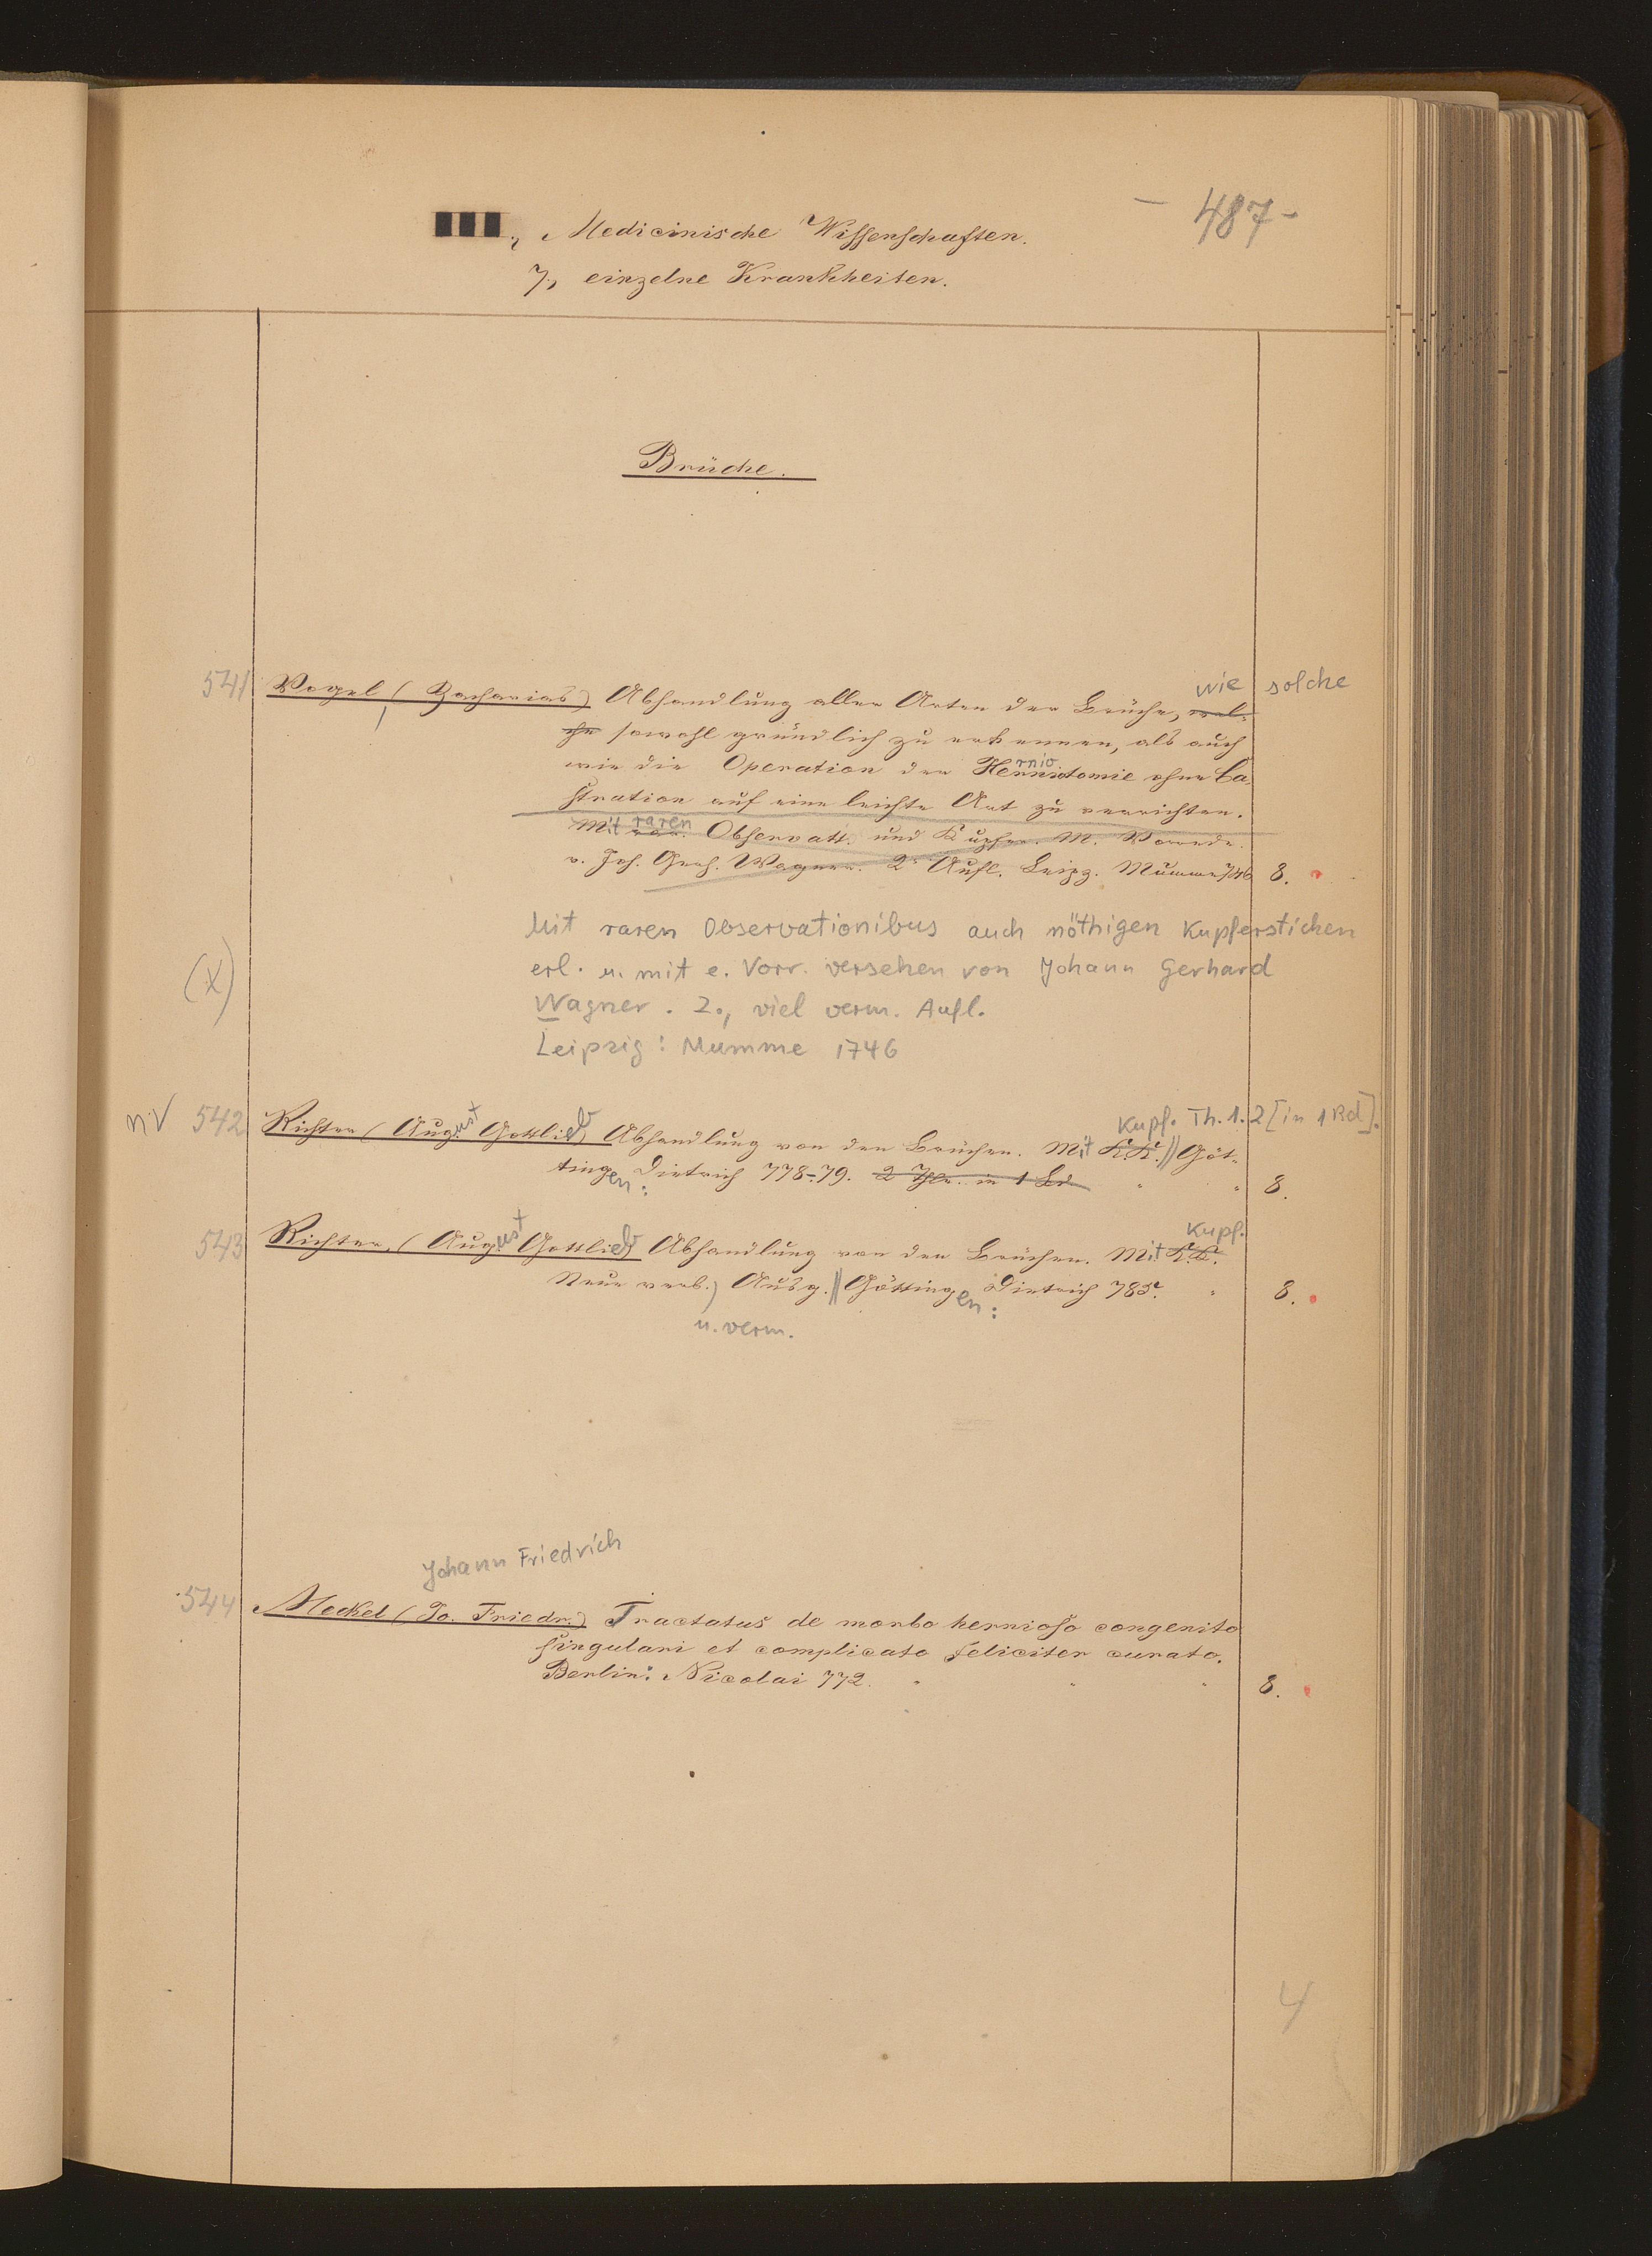 - 487 -
III., Medicinische Wissenschaften.
7., einzelne Krankheiten.
Brüche.
wie solche
541 Vogel, (Zacharias) Abhandlung aller Arten der Brüche, wel-
che sowohl gründlich zu erkennen, als auch
wie die Operation der Herniotomie ohne Ca-
stration auf eine leichte Art zu verrichten.
Mit raren Observatt. und Kupfer. M. Vorrede
v. Joh. Gerh. Wagner. 2e Aufl. Leipz. Mumme 746 8.
Mit raren Observationibus auch nöthigen Kupferstichen
erl. u. mit e. Vorr. versehen von Johann Gerhard
(X)
Wagner. 2., viel verm. Aufl.
Leipzig: Mumme 1746
Kupf. Th. 1.2 [in 1 Bd].
542 Richter (August Gottlieb) Abhandlung von den Brüchen. Mit K.K. // Göt-
tingen: Dietrich 778-79. 2 Thle. in 1 Bd " " 8.
Kupf.
543 Richter, (August Gottlieb) Abhandlung von den Brüchen. Mit K.K.
Neue verb.) Ausg. // Göttingen: Dietrich 785. " 8.
u. verm.
Johann Friedrich
544 Meckel (Jo. Friedr.) Tractatus de morbo hernioso congenito
singulari et complicato feliciter curato.
Berlin: Nicolai 772. " " " 8.
4